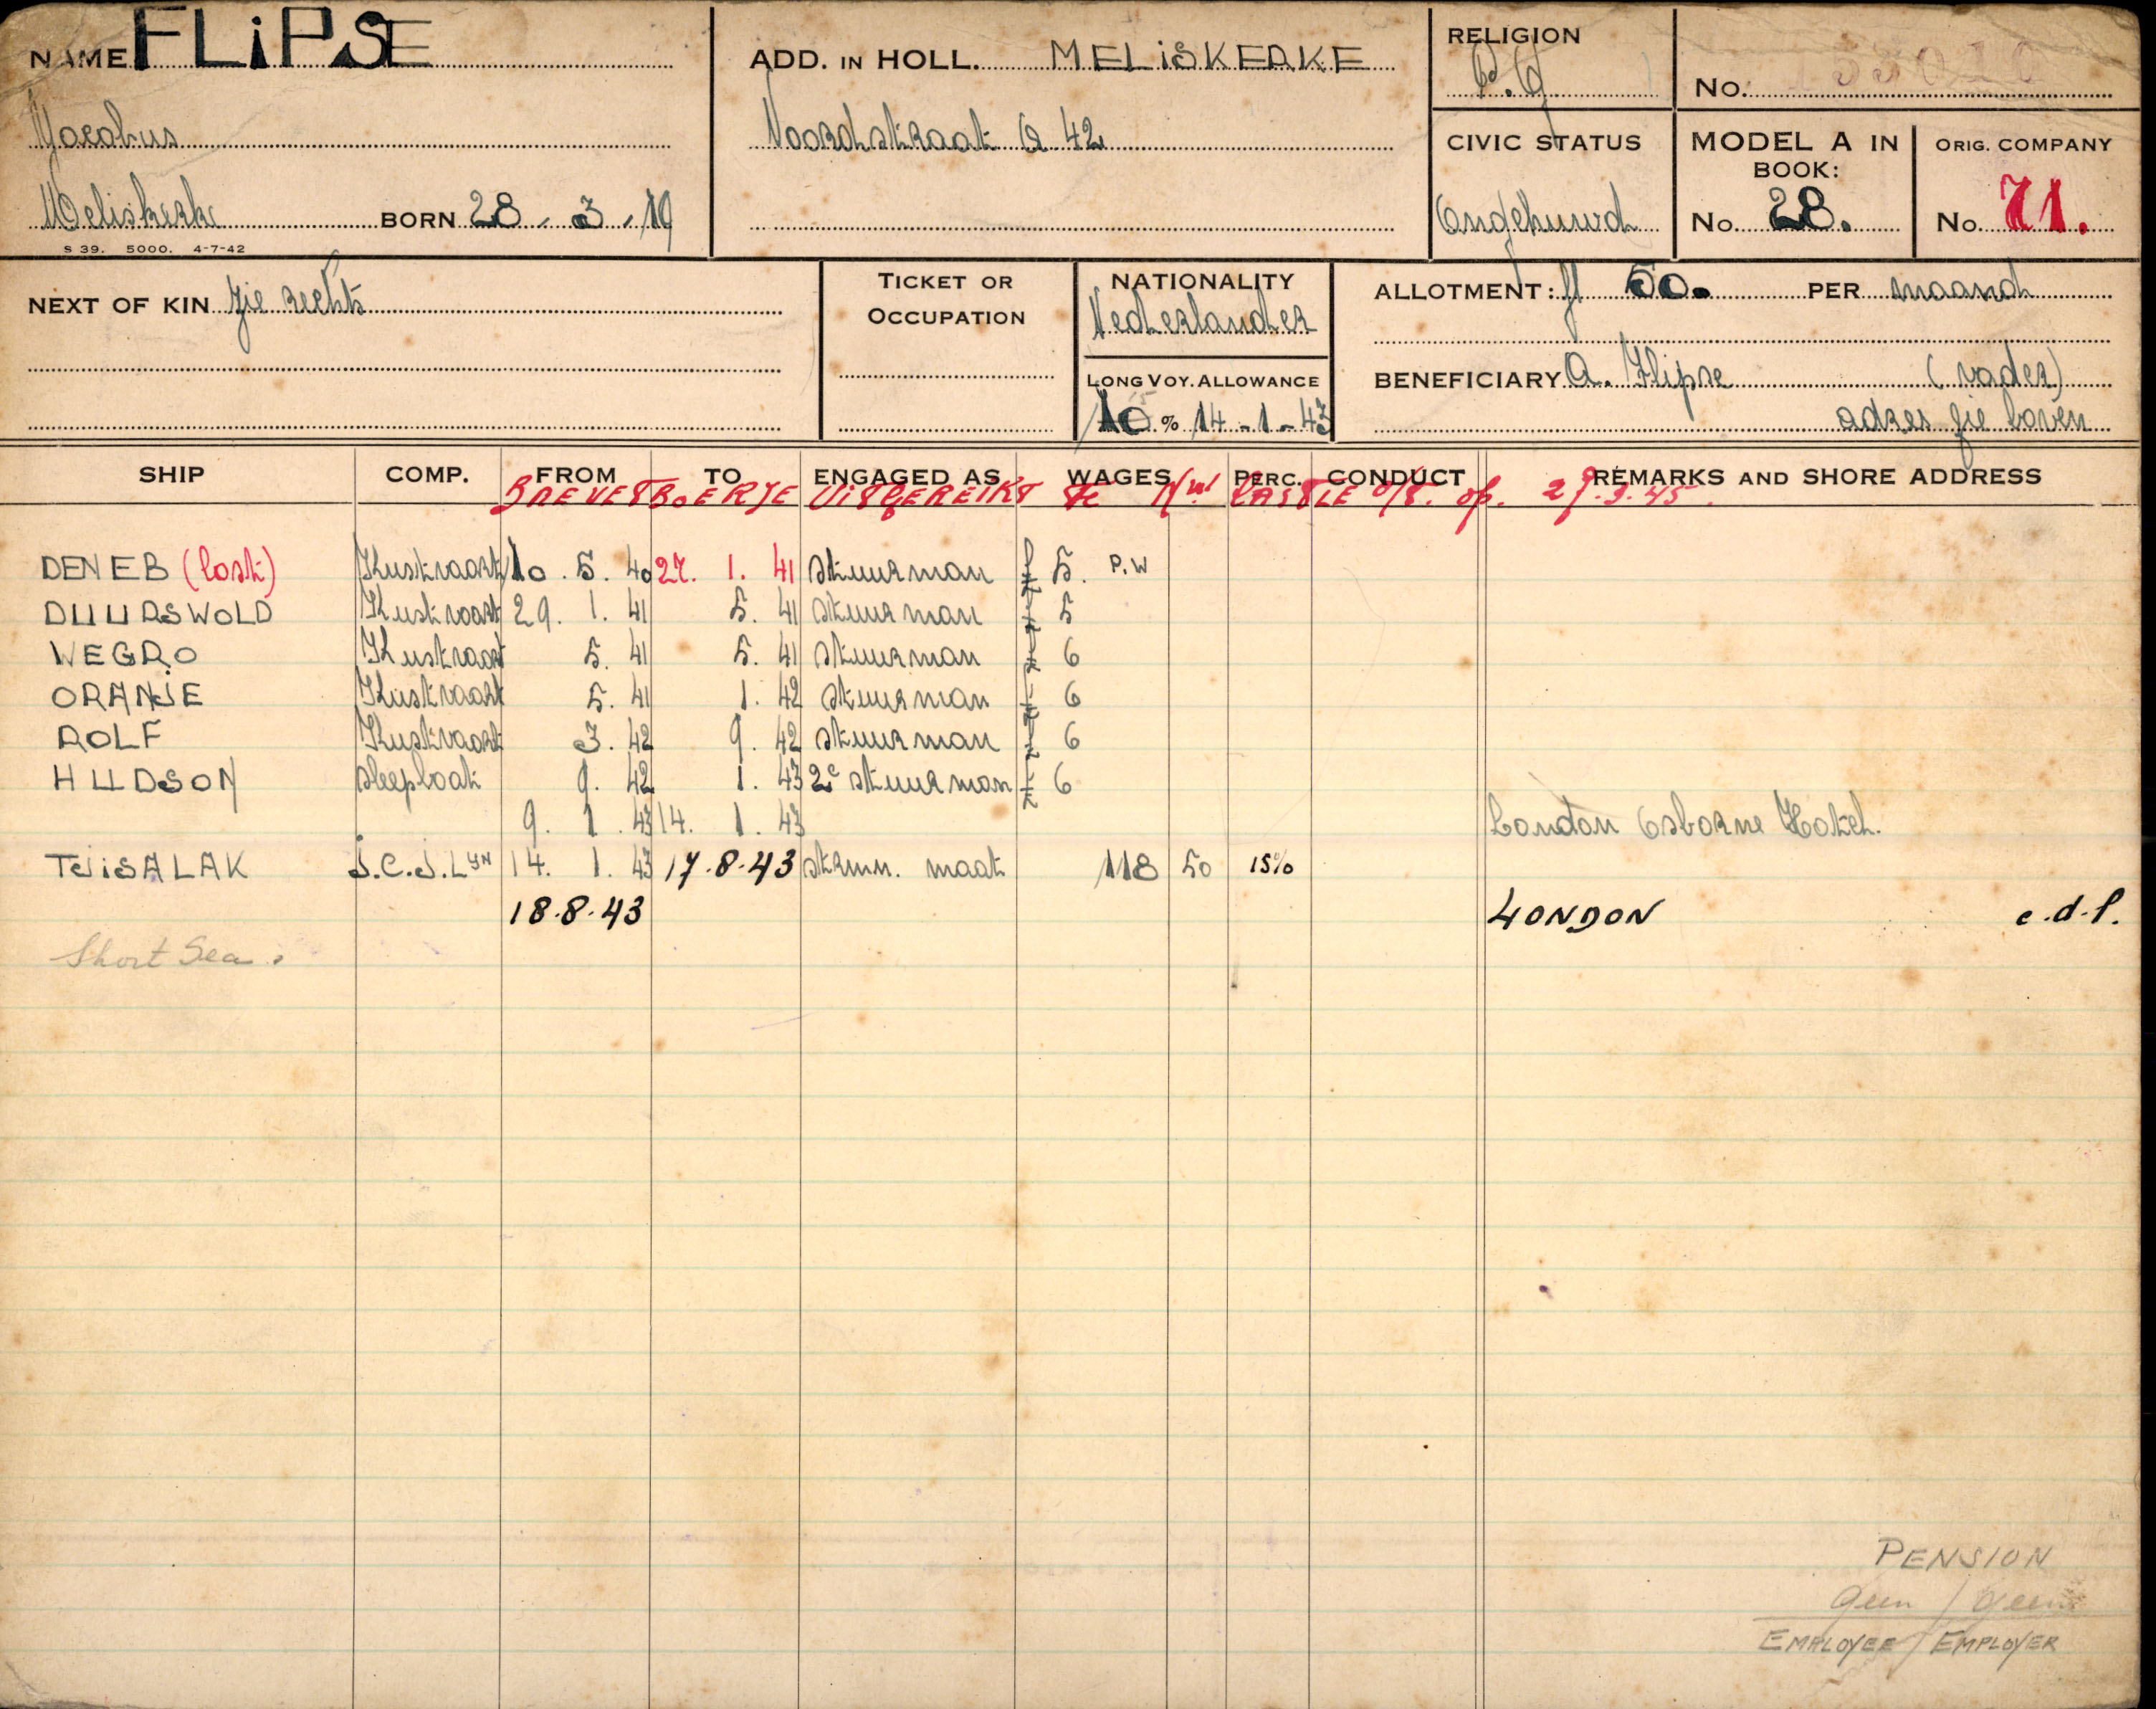 NAME FLiPSE
Jacobus
Meliskerke BORN 28. 3. 19
S 39. 5000. 4-7-42
ADD. IN HOLL. MELiSKERKE
Noordstraat A 42
RELIGION
P.G
No. 155010
CIVIC STATUS
Ongehuwd
MODEL A IN BOOK:
No. 28.
ORIG. COMPANY
No. 71.
NEXT OF KIN zie rechts
TICKET OR OCCUPATION
NATIONALITY
Nederlander
LONG VOY. ALLOWANCE
10 % 14-1-43
ALLOTMENT: fl 50. PER maand
BENEFICIARY A. Flipse (vader)
adres zie boven
SHIP COMP. FROM TO ENGAGED AS WAGES PERC. CONDUCT REMARKS AND SHORE ADDRESS
BREVETBOEKJE UITGEREIKT te Nw CASTLE o/T. op. 29.3.45.
DENEB (lost) Kustvaart 10. 5. 40 27. 1. 41 stuurman £ 5. P.W
DUURSWOLD Kustvaart 29. 1. 41 5. 41 stuurman £ 5
WEGRO Kustvaart 5. 41 5. 41 stuurman £ 6
ORANJE Kustvaart 5. 41 1. 42 stuurman £ 6
ROLF Kustvaart 3. 42 9. 42 stuurman £ 6
HUDSON sleepboot 9. 42 1. 43 2e stuurman £ 6
9. 1. 43 14. 1. 43 London Osborne Hotel.
TJiSALAK J.C.J.LYN 14. 1. 43 17.8.43 strmn. maat 118 50 15%
18.8.43 LONDON e.d.l.
Short Sea.
PENSION
Geen / Geen
EMPLOYEE / EMPLOYER